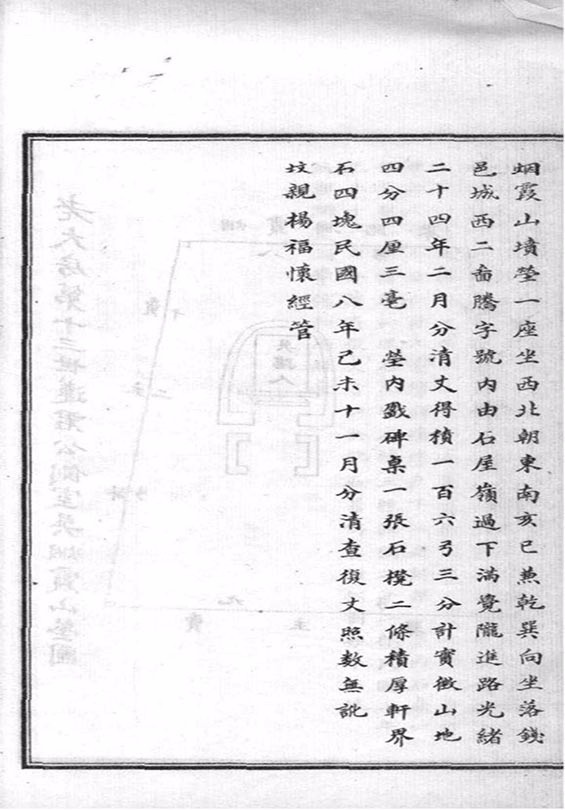 烟霞山墳塋一座坐西北朝東南亥巳兼乾巽向坐落錢
邑城西二啚騰字號內由石屋嶺過下滿覺隴進路光緒
二十四年二月分清丈得積一百六弓三分計實徵山地
四分四厘三毫　塋內戤碑桌一張石櫈二條積厚軒界
石四塊民國八年己未十一月分清查復丈照數無訛
坟親楊福懷經管